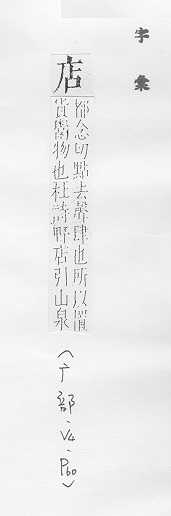 字彙
店
都念切點去聲肆也所以置
貨鬻物也杜詩野店引山泉
(广部·V4·P60)